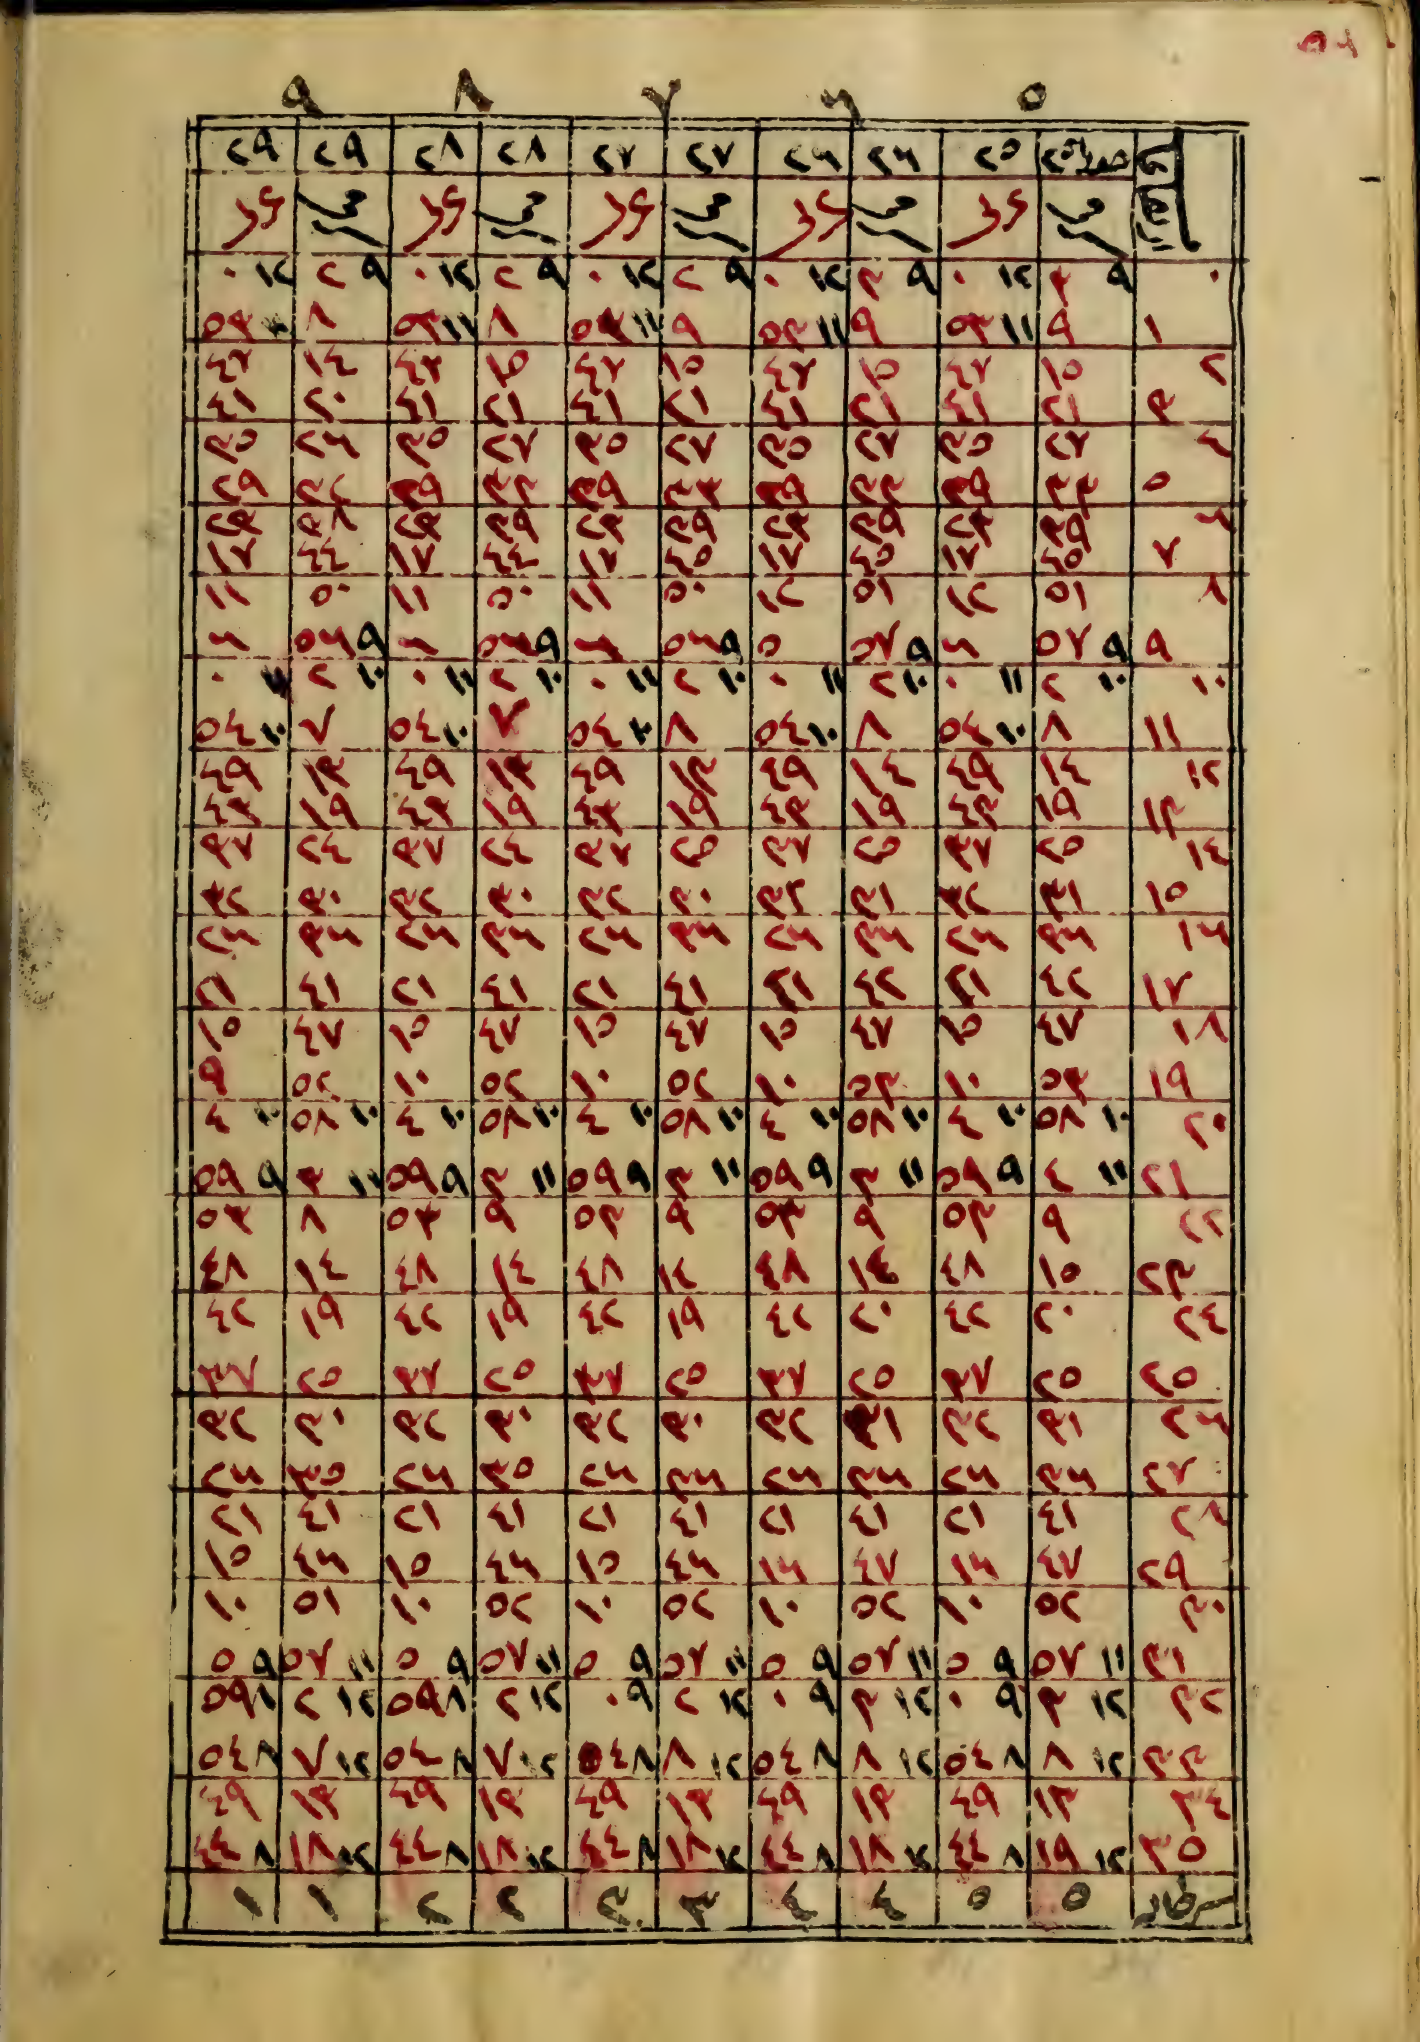 ٥ ٦ ٧ ٨ ٩
٢٥ ٢٥ ٢٦ ٢٦ ٢٧ ٢٧ ٢٨ ٢٨ ٢٩ ٢٩
٠ ٩ ٣ ١٢ ٠ ٩ ٣ ١٢ ٠ ٩ ٢ ١٢ ٠ ٩ ٢ ١٢ ٠ ٩ ٢ ١٢ ٠
١ ٩ ١١ ٥٣ ٩ ١١ ٥٣ ٩ ١١ ٥٣ ٨ ١١ ٥٣ ٨ ٥٣
٢ ١٥ ٤٧ ١٥ ٤٧ ١٥ ٤٧ ١٥ ٤٧ ١٤ ٤٧
٣ ٢١ ٤١ ٢١ ٤١ ٢١ ٤١ ٢١ ٤١ ٢٠ ٤١
٤ ٢٧ ٣٥ ٢٧ ٣٥ ٢٧ ٣٥ ٢٧ ٣٥ ٢٦ ٣٥
٥ ٣٣ ٢٩ ٣٣ ٢٩ ٣٣ ٢٩ ٣٣ ٢٩ ٣٢ ٢٩
٦ ٣٩ ٢٣ ٣٩ ٢٣ ٣٩ ٢٣ ٣٩ ٢٣ ٣٨ ٢٣
٧ ٤٥ ١٧ ٤٥ ١٧ ٤٥ ١٧ ٤٤ ١٧ ٤٤ ١٧
٨ ٥١ ١٢ ٥١ ١٢ ٥٠ ١١ ٥٠ ١١ ٥٠ ١١
٩ ٩ ٥٧ ٦ ٩ ٥٧ ٥ ٩ ٥٦ ٦ ٩ ٥٦ ٦ ٩ ٥٦ ٦
١٠ ١٠ ٢ ١١ ٠ ١٠ ٢ ١١ ٠ ١٠ ٢ ١١ ٠ ١٠ ٢ ١١ ٠ ١٠ ٢ ١١ ٠
١١ ٨ ١٠ ٥٤ ٨ ١٠ ٥٤ ٨ ١٠ ٥٤ ٧ ١٠ ٥٤ ٧ ١٠ ٥٤
١٢ ١٤ ٤٩ ١٤ ٤٩ ١٣ ٤٩ ١٣ ٤٩ ١٣ ٤٩
١٣ ١٩ ٤٣ ١٩ ٤٣ ١٩ ٤٣ ١٩ ٤٣ ١٩ ٤٣
١٤ ٢٥ ٣٧ ٢٥ ٣٧ ٢٥ ٣٧ ٢٤ ٣٧ ٢٤ ٣٧
١٥ ٣١ ٣٢ ٣١ ٣٢ ٣٠ ٣٢ ٣٠ ٣٢ ٣٠ ٣٢
١٦ ٣٦ ٢٦ ٣٦ ٢٦ ٣٦ ٢٦ ٣٦ ٢٦ ٣٦ ٢٦
١٧ ٤٢ ٢١ ٤٢ ٢١ ٤١ ٢١ ٤١ ٢١ ٤١ ٢١
١٨ ٤٧ ١٥ ٤٧ ١٥ ٤٧ ١٥ ٤٧ ١٥ ٤٧ ١٥
١٩ ٥٣ ١٠ ٥٣ ١٠ ٥٢ ١٠ ٥٢ ١٠ ٥٢ ٩
٢٠ ١٠ ٥٨ ١٠ ٤ ١٠ ٥٨ ١٠ ٤ ١٠ ٥٨ ١٠ ٤ ١٠ ٥٨ ١٠ ٤ ١٠ ٥٨ ١٠ ٤
٢١ ١١ ٤ ٩ ٥٩ ١١ ٣ ٩ ٥٩ ١١ ٣ ٩ ٥٩ ١١ ٣ ٩ ٥٩ ١١ ٣ ٩ ٥٩
٢٢ ٩ ٥٣ ٩ ٥٣ ٩ ٥٣ ٩ ٥٣ ٨ ٥٣
٢٣ ١٥ ٤٨ ١٤ ٤٨ ١٤ ٤٨ ١٤ ٤٨ ١٤ ٤٨
٢٤ ٢٠ ٤٢ ٢٠ ٤٢ ١٩ ٤٢ ١٩ ٤٢ ١٩ ٤٢
٢٥ ٢٥ ٣٧ ٢٥ ٣٧ ٢٥ ٣٧ ٢٥ ٣٧ ٢٥ ٣٧
٢٦ ٣١ ٣٢ ٣١ ٣٢ ٣٠ ٣٢ ٣٠ ٣٢ ٣٠ ٣٢
٢٧ ٣٦ ٢٦ ٣٦ ٢٦ ٣٦ ٢٦ ٣٥ ٢٦ ٣٥ ٢٦
٢٨ ٤١ ٢١ ٤١ ٢١ ٤١ ٢١ ٤١ ٢١ ٤١ ٢١
٢٩ ٤٧ ١٦ ٤٧ ١٦ ٤٦ ١٥ ٤٦ ١٥ ٤٦ ١٥
٣٠ ٥٢ ١٠ ٥٢ ١٠ ٥٢ ١٠ ٥٢ ١٠ ٥١ ١٠
٣١ ١١ ٥٧ ٩ ٥ ١١ ٥٧ ٩ ٥ ١١ ٥٧ ٩ ٥ ١١ ٥٧ ٩ ٥ ١١ ٥٧ ٩ ٥
٣٢ ١٢ ٣ ٩ ٠ ١٢ ٣ ٩ ٠ ١٢ ٢ ٩ ٠ ١٢ ٢ ٨ ٥٩ ١٢ ٢ ٨ ٥٩
٣٣ ١٢ ٨ ٨ ٥٤ ١٢ ٨ ٨ ٥٤ ١٢ ٨ ٨ ٥٤ ١٢ ٧ ٨ ٥٤ ١٢ ٧ ٨ ٥٤
٣٤ ١٣ ٤٩ ١٣ ٤٩ ١٣ ٤٩ ١٣ ٤٩ ١٣ ٤٩
٣٥ ١٢ ١٩ ٨ ٤٤ ١٢ ١٨ ٨ ٤٤ ١٢ ١٨ ٨ ٤٤ ١٢ ١٨ ٨ ٤٤ ١٢ ١٨ ٨ ٤٤
سرطان ٥ ٥ ٤ ٤ ٣ ٣ ٢ ٢ ١ ١